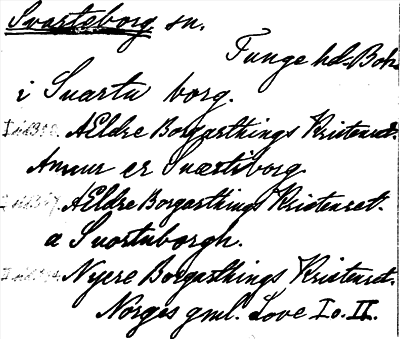 Svarteborg sn.
Tunge hd. Boh.
i Suartu borg.
Ældre Borgarthings Kristenret.
Annur er Suærtiborg
Ældre Borgarthings Kristenret.
a Suortuborgh.
Nyere Borgarthings Kristenret.
Norges gml. Love I o. II.